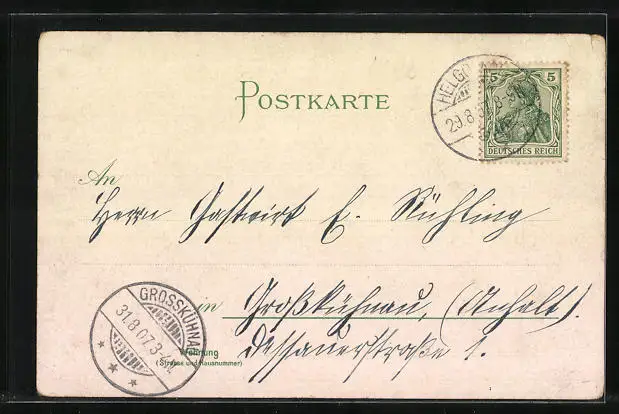 POSTKARTE
5 5
DEUTSCHES REICH
29.8.
An
Herrn Gastwirt E. Rühling
in Großkühnau, (Anhalt).
GROSSKÜHNAU
31.8.07.3-4
Wohnung
(Strasse und Hausnummer)
Dessauerstraße 1.